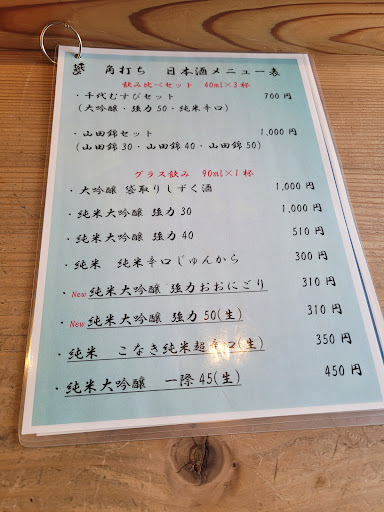 角打ち 日本酒メニュー表
飲み比べセット 40ml×3杯
・千代むすびセット 700円
(大吟醸・強力50・純米辛口)
・山田錦セット 1,000円
(山田錦30・山田錦40・山田錦50)
グラス飲み 90ml×1杯
・大吟醸 袋取りしずく酒 1,000円
・純米大吟醸 強力30 1,000円
・純米大吟醸 強力40 510円
・純米 純米辛口じゅんから 300円
・New純米大吟醸 強力おおにごり 310円
・New純米大吟醸 強力50(生) 310円
・純米 こなき純米超辛口(生) 350円
・純米大吟醸 一際45(生) 450円